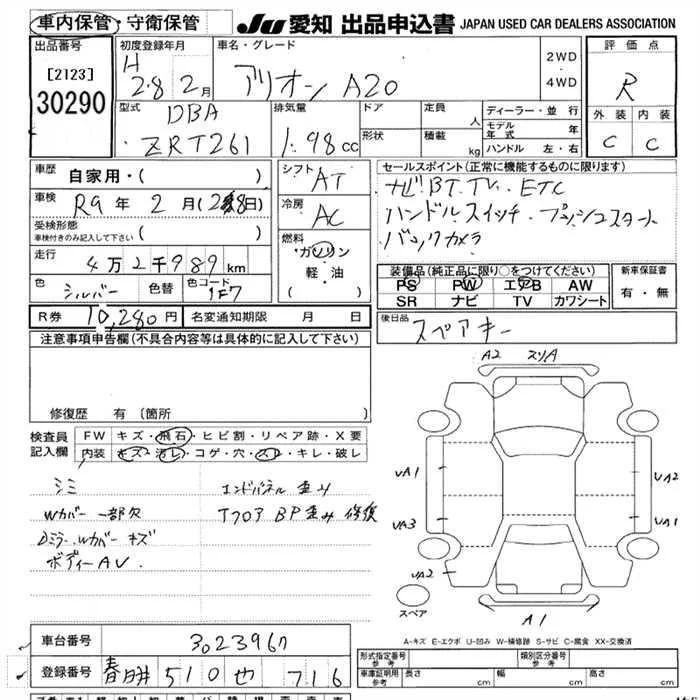 車内保管・守衛保管 JU 愛知 出品申込書 JAPAN USED CAR DEALERS ASSOCIATION
出品番号 [2123] 30290
初度登録年月 H 28 2月
車名・グレード アリオン A20
2WD
4WD
評価点 R
外装 内装
C C
型式 DBA
ZRT261
排気量 1.98 cc
ドア 定員 人
形状 積載 kg
ディーラー・並行
モデル年式 年
ハンドル 左・右
車歴 自家用・( )
車検 R9年 2月(28日)
受検形態
車検付きのみ記入して下さい ( )
走行 4万2千989 km
色 シルバー 色替 色コード 1F7
シフト AT
冷房 AC
燃料
ガソリン
軽・油
( )
セールスポイント(正常に機能するものに限ります)
ナビ BT. TV. ETC
ハンドルスイッチ・プッシュスタート
バックカメラ
装備品(純正品に限り○をつけてください)
PS PW エアB AW
SR ナビ TV カワシート
新車保証書
有・無
R券 10,280円 名変通知期限 月 日
後日品 スペアキー
注意事項申告欄(不具合内容等は具体的に記入して下さい)
修復歴 有(箇所
検査員記入欄
FW キズ・飛石・ヒビ割・リペア跡・X要
内装 キズ・汚レ・コゲ・穴・スレ・キレ・破レ
シミ エンドパネル 歪み
Wカバー 一部欠 Tフロア BP歪み 修復
Dミラー.Wカバー キズ
ボディー AU.
A2 スリA
UA1 UA2
UA3 UA1
UA2
スペア
A1
A-キズ E-エクボ U-凹み W-補修跡 S-サビ C-腐食 XX-交換済
車台番号 3023967
登録番号 春日井 510 せ 716
形式指定番号
参考
類別区分番号
参考
車庫証明用
参考
長さ cm 幅 cm 高さ cm